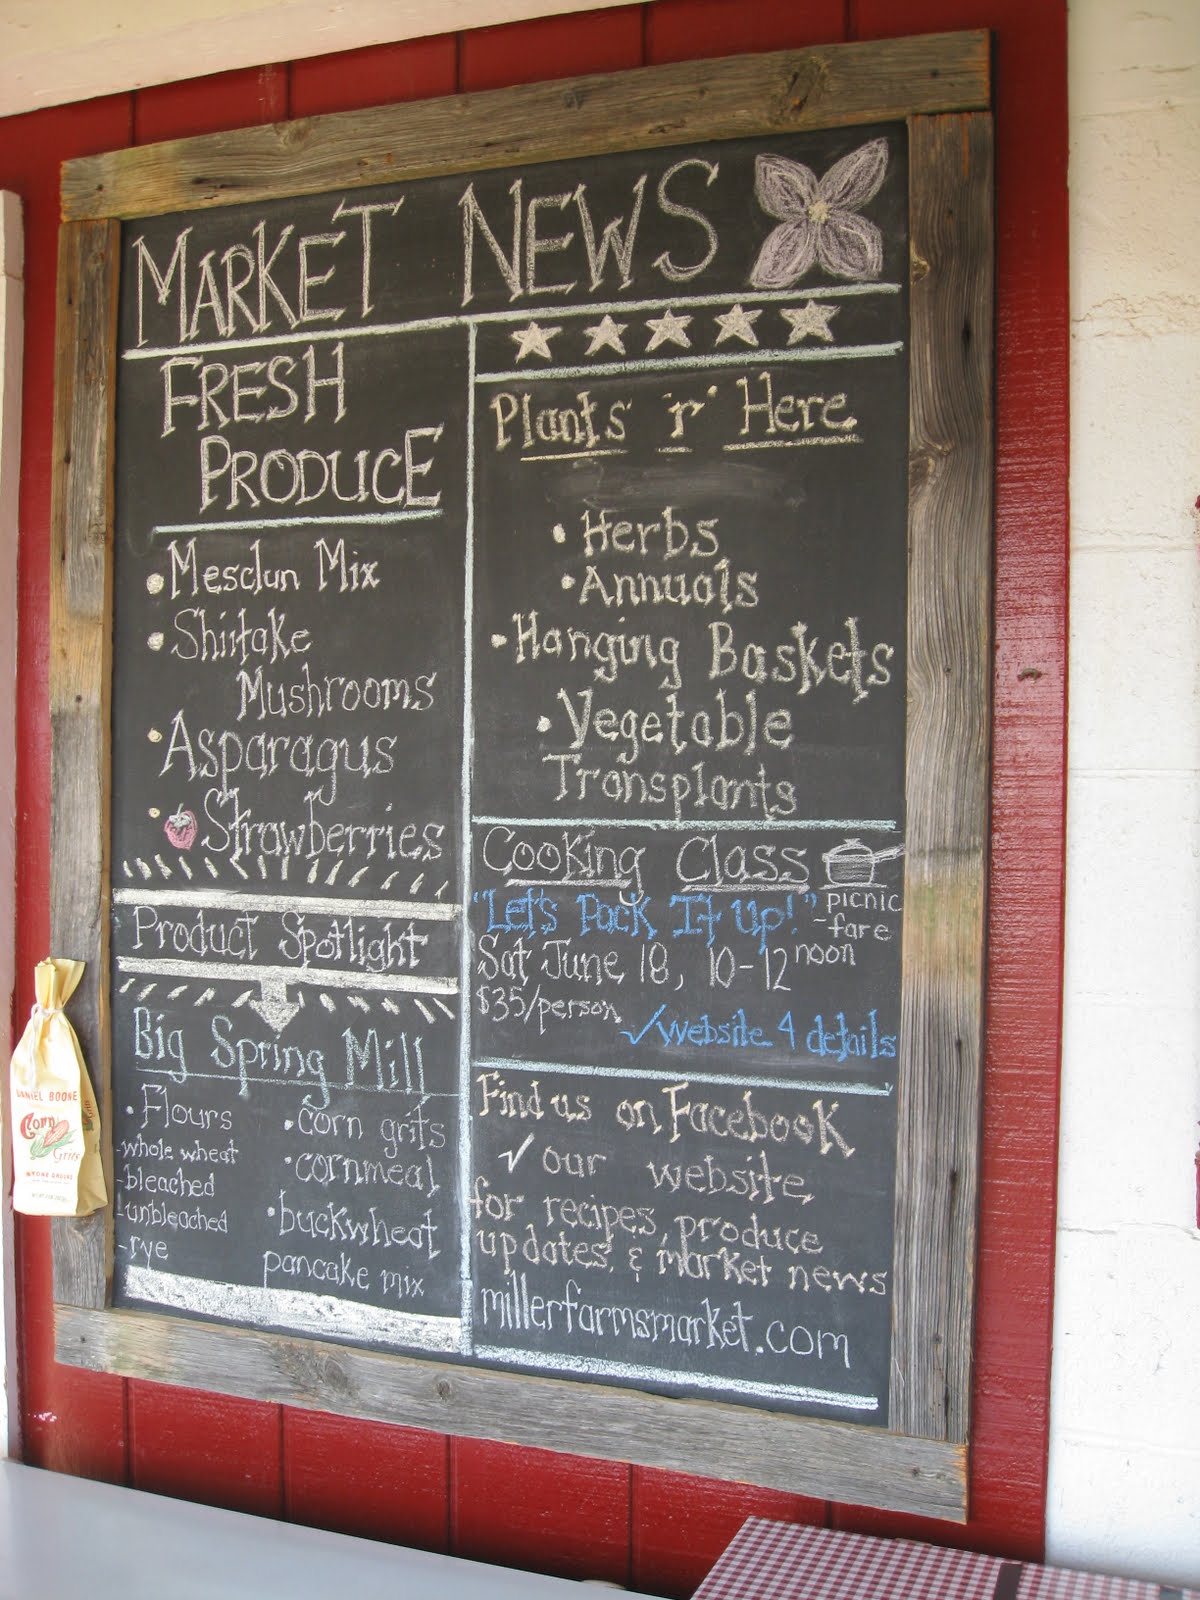 MARKET NEWS
FRESH
PRODUCE
• Mesclun Mix
• Shiitake
Mushrooms
• Asparagus
• Strawberries
Product Spotlight
Big Spring Mill
• Flours
-whole wheat
-bleached
-unbleached
-rye
• corn grits
• cornmeal
• buckwheat
pancake mix
Plants 'r' Here
• Herbs
• Annuals
• Hanging Baskets
• Vegetable
Transplants
Cooking Class
"Let's Pack It Up!" picnic
-fare
Sat June 18, 10-12 noon
$35/person
✓website 4 details
Find us on Facebook
✓ our website
for recipes, produce
updates, & market news
millerfarmsmarket.com
DANIEL BOONE
Corn
Grits